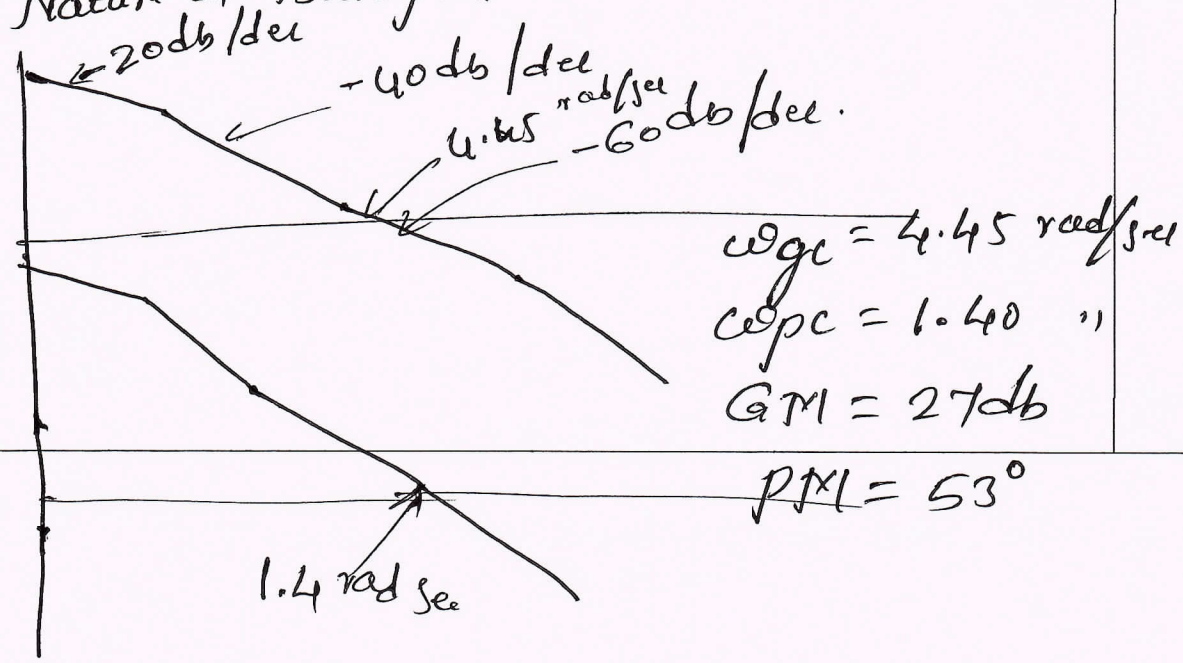 -20db/dec
-40db/dec
4.45 rad/sec
-60db/dec.
ωgc = 4.45 rad/sec
ωpc = 1.40 "
GM = 27db
PM = 53°
1.4 rad sec